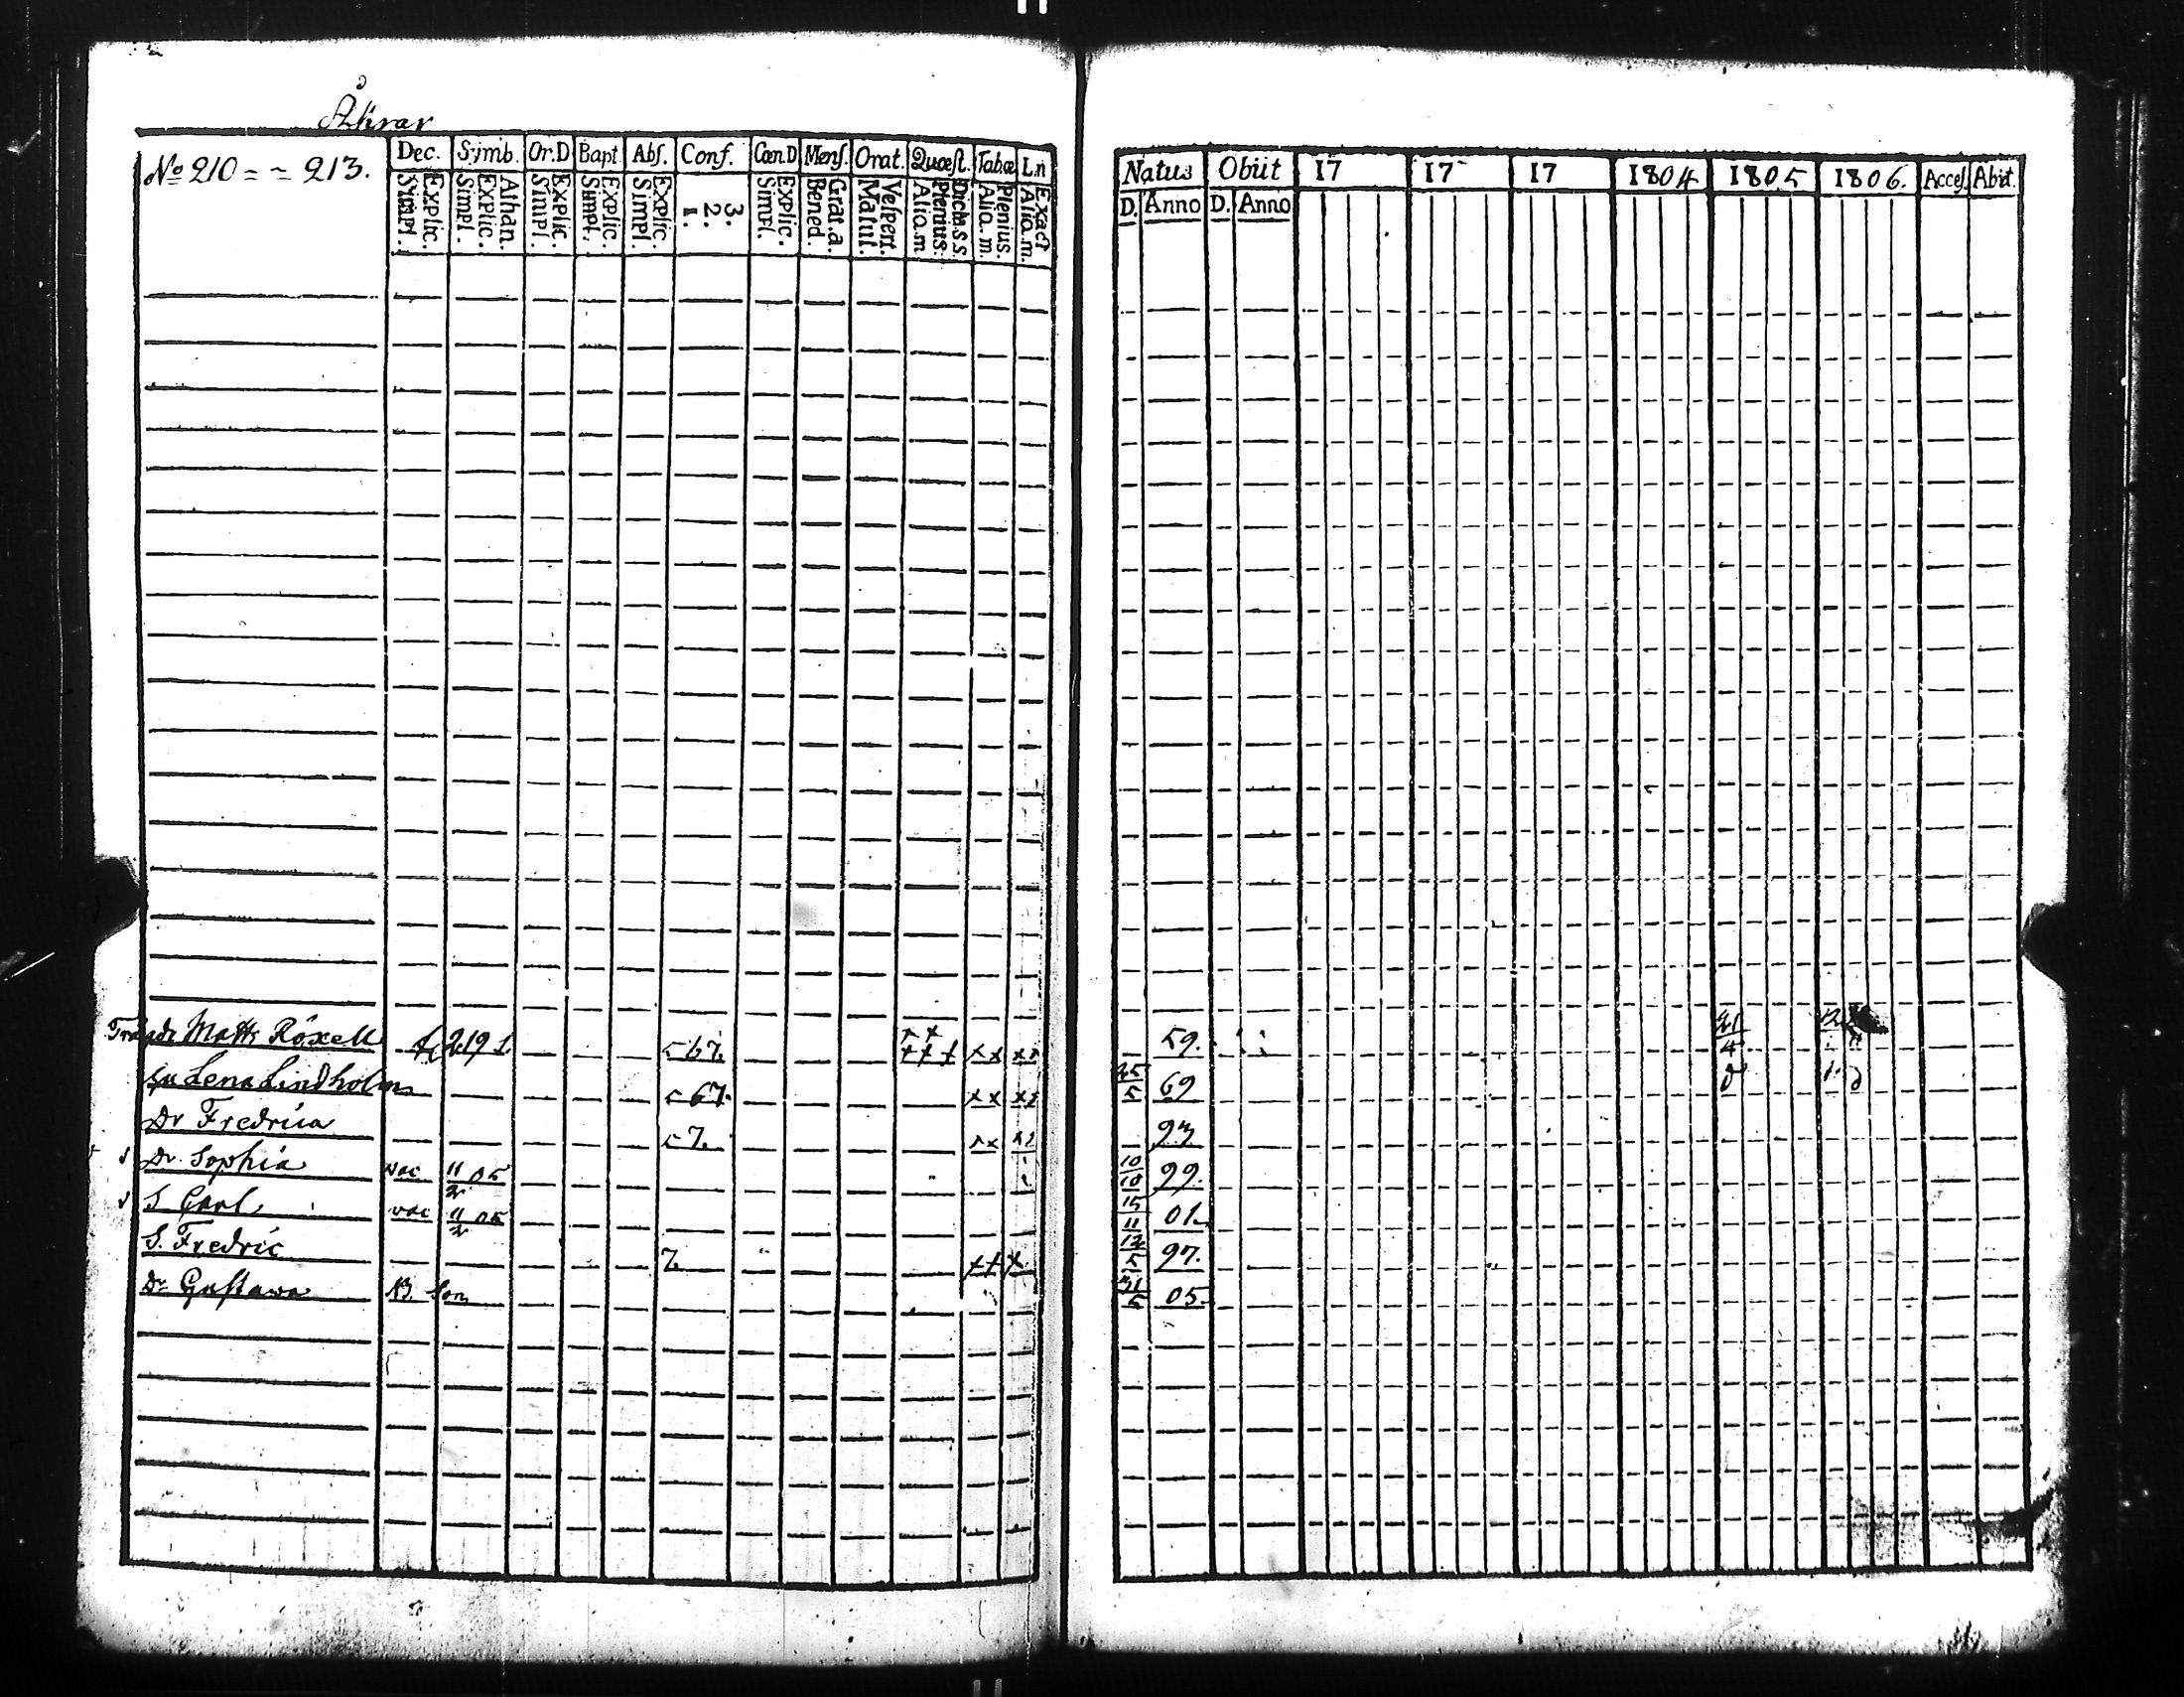 Åkrar
No 210 = ~ 213.
Dec. Symb. Or.D Bapt. Abs. Conf. Cœn.D Mens. Orat. Quœst. Tabœ Ln
Explic. Simpl. Athan. Explic. Simpl. Explic. Simpl. Explic. Simpl. Explic. Simpl. 3. 2. 1. Explic. Simpl. Grat.a. Bened. Vespert. Matut. Dicta.s.s. Plenius. Alia.m Plenius. Alia.m. Exact Alia.m.
Natus Obiit 17 17 17 1804 1805 1806. Acces. Abit.
D. Anno D. Anno
Matts Röxell 219 1 67. +++ ++ 59. 21/4 12
Hu Lena Lindholm 67. ++ 25/5 69
Dr Fredrica 7. 93
Dr. Sophia vac 11/2 05 10/10 99.
S Carl vac 11/2 05 15/11 01.
S. Fredric 7. +++ 12/5 97.
Dr Gustava 31/5 05.